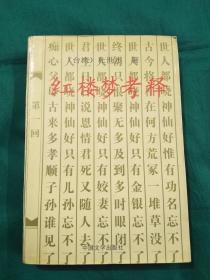 红楼梦考释
(台湾)杜世杰
世人都晓神仙好惟有功名忘不了
古今将相在何方荒冢一堆草没了
世人都晓神仙好只有金银忘不了
终朝只恨聚无多及到多时眼闭了
世人都晓神仙好只有姣妻忘不了
君生日日说恩情君死又随人去了
世人都晓神仙好只有儿孙忘不了
痴心父母古来多孝顺子孙谁见了
第一回
中国文学出版社